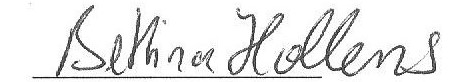 Bettina Hollens